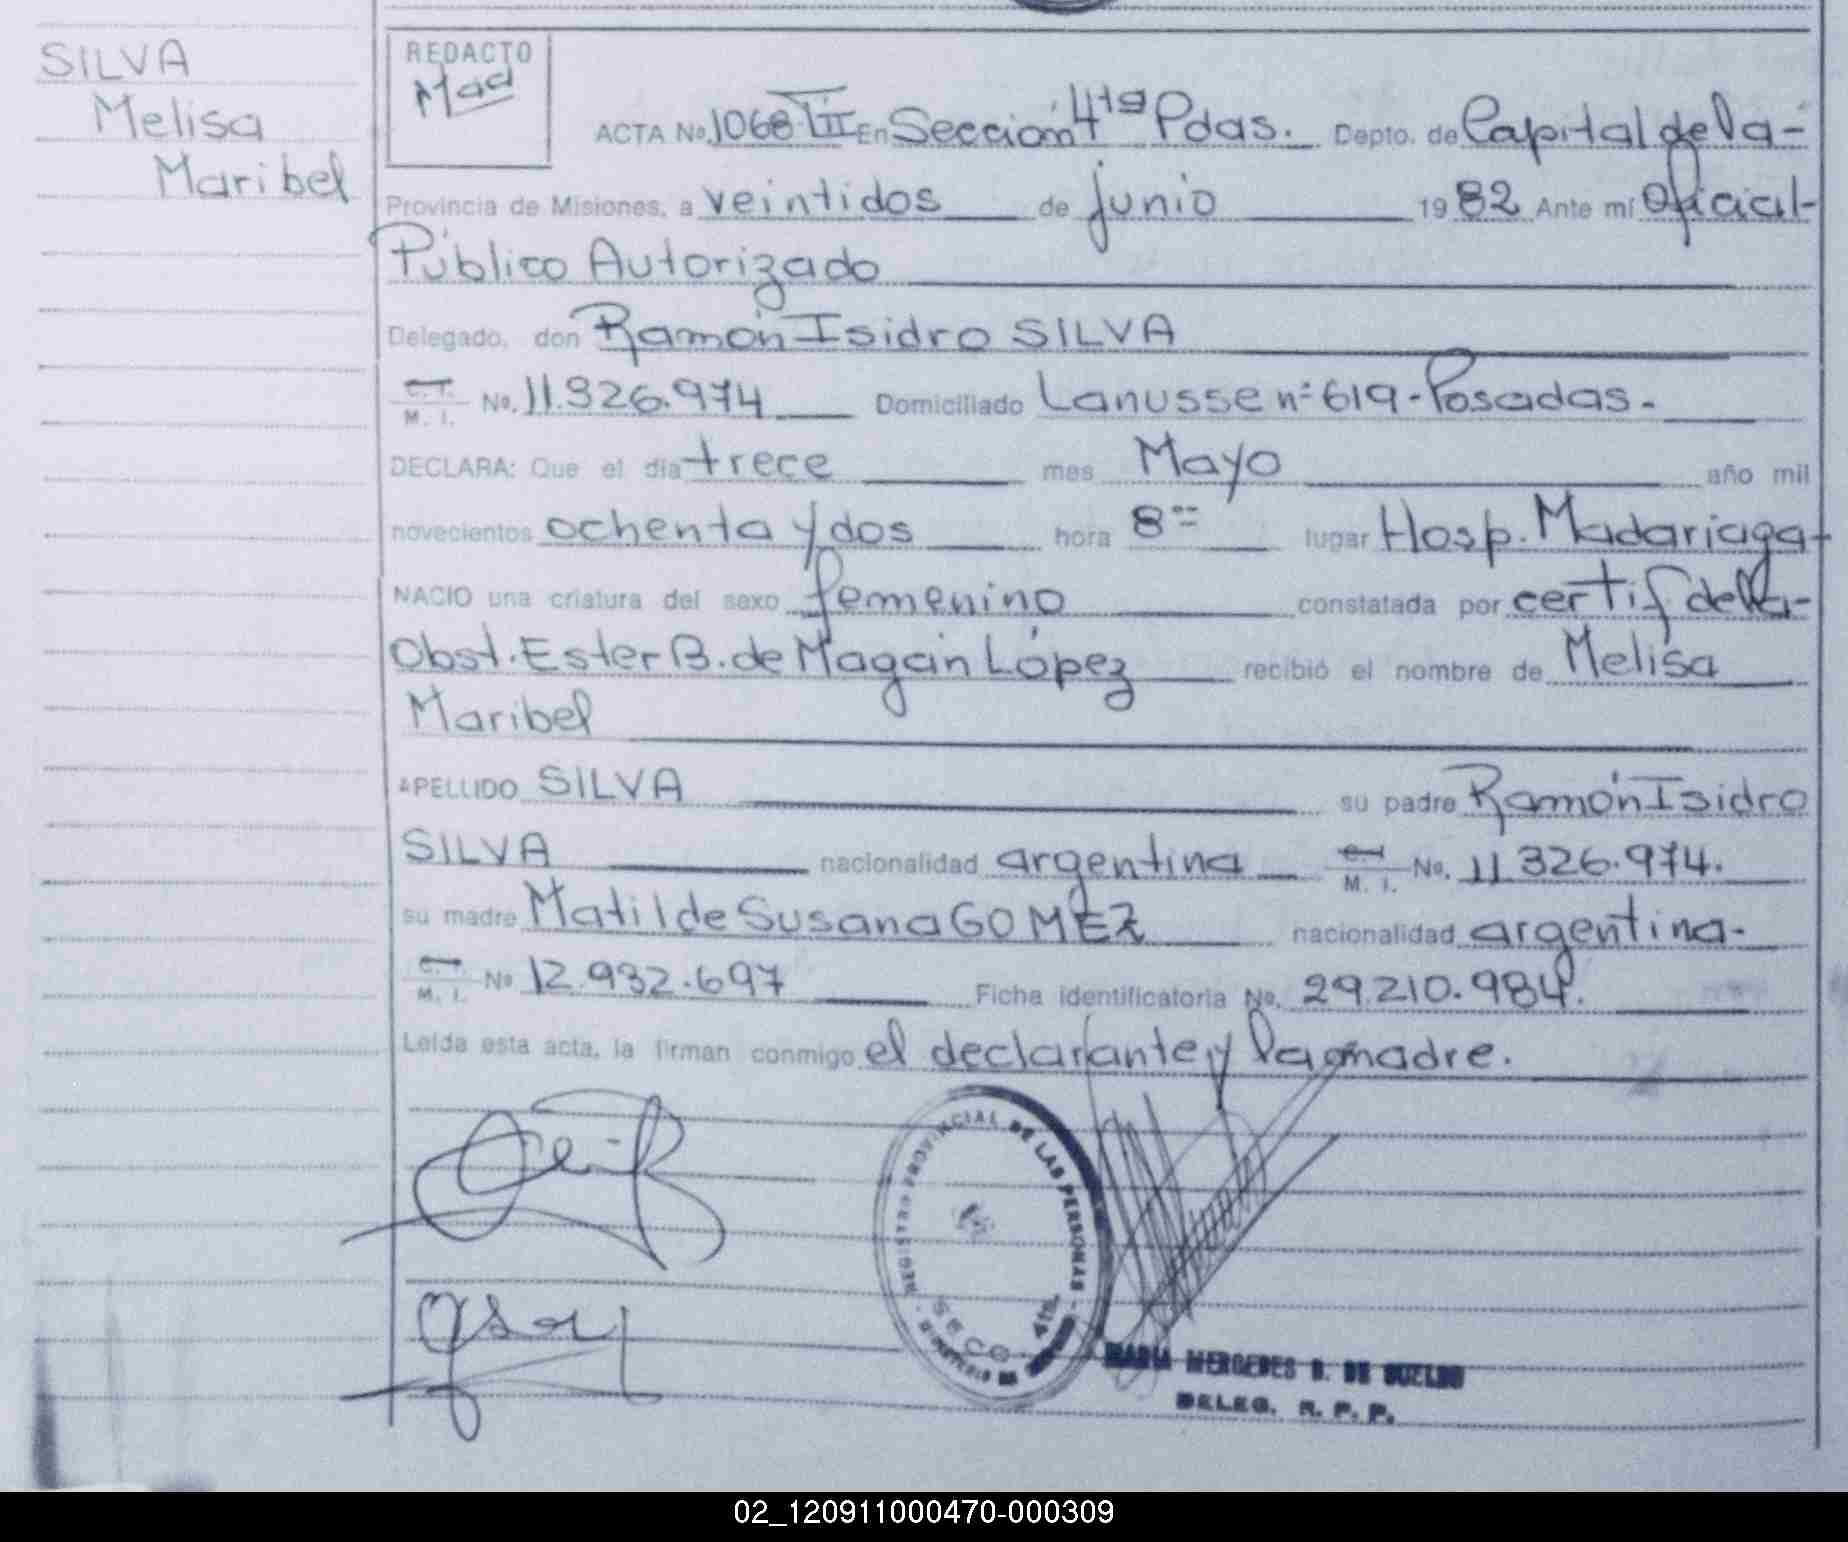 SILVA
Melisa
Maribel
REDACTO
Mad
ACTA No. 1068 TII En Sección 4ta Pdas. Depto. de Capital de la-
Provincia de Misiones, a veintidos de junio 1982 Ante mí Oficial-
Público Autorizado
Delegado, don Ramón Isidro SILVA
C.I. M. I. No. 11.326.974 Domiciliado Lanusse nº 619-Posadas.-
DECLARA: Que el día trece mes Mayo año mil
novecientos ochenta y dos hora 8 lugar Hosp. Madariaga-
NACIO una criatura del sexo femenino constatada por certif de la-
Obst. Ester B. de Magán López recibió el nombre de Melisa
Maribel
APELLIDO SILVA su padre Ramón Isidro
SILVA nacionalidad argentina C.I. M. I. No. 11.326.974.
su madre Matilde Susana GOMEZ nacionalidad argentina.-
C.I. M. I. No 12.932.697 Ficha identificatoria No. 29.210.984.
Leída esta acta, la firman conmigo el declarante y la madre.
REGISTRO PROVINCIAL DE LAS PERSONAS
SECC. 4ta.
MARIA MERCEDES B. DE SUELDO
DELEG. R. P. P.
02_120911000470-000309